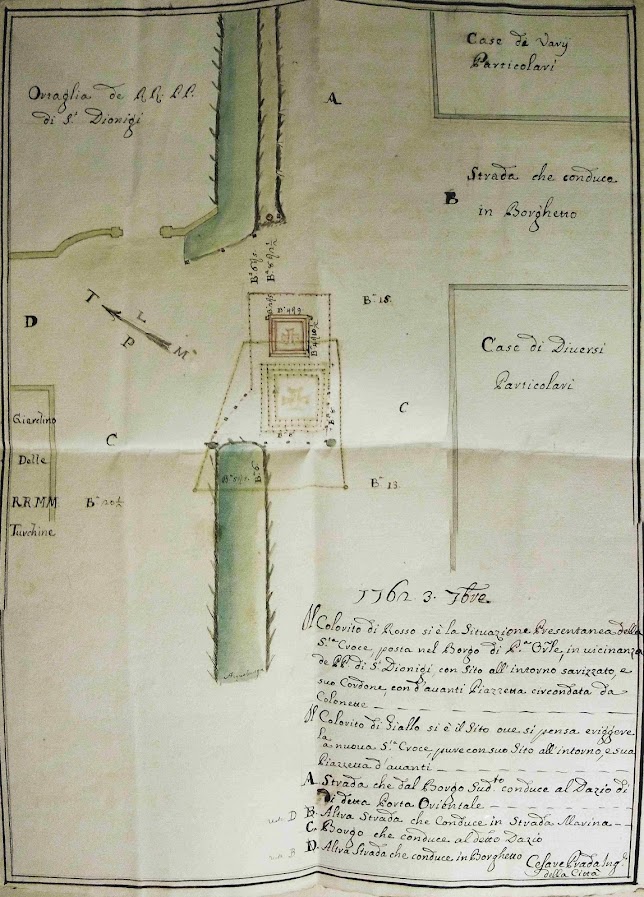 Ortaglia de RR. PP.
di S. Dionigi
A
Case de Varij
Particolari
Strada che conduce
B
in Borghetto
D
T L
P M
B.a 18.
Case di Diversi
Particolari
C
C
Giardino
Delle
RR MM
Turchine
B.a 20½
B.a 6
B.a 13.
1762. 3. 7bre
Il Colorito di Rosso si è la Situazione Presentanea della
S.ta Croce, posta nel Borgo di P.ta Orle, in vicinanza
de PP. di S. Dionigi, con Sito all'intorno savizzato, e
suo Cordone, con d'avanti Piazzetta circondata da
Colonette
Il Colorito di Giallo si è il Sito ove si pensa eriggere
la nuova S.ta Croce, pure con suo Sito all'intorno, e sua
Piazzetta d'avanti
A Strada che dal Borgo Sud.to conduce al Dazio di
Di detta Porta Orientale
B. Altra Strada che Conduce in Strada Marina
C. Borgo che conduce al detto Dazio
D. Altra Strada che conduce in Borghetto
Cesare Prada Ing.e
della Città